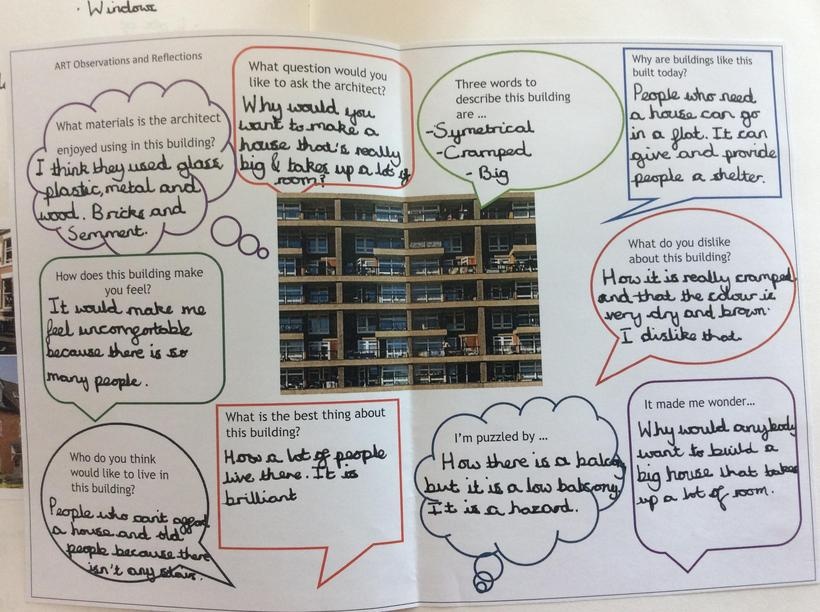 · Windows
ART Observations and Reflections
What materials is the architect
enjoyed using in this building?
I think they used glass
plastic, metal and
wood. Bricks and
Semment.
What question would you
like to ask the architect?
Why would you
want to make a
house that's really
big & takes up a lots of
room?
Three words to
describe this building
are ...
-Symetrical
-Cramped
- Big
Why are buildings like this
built today?
People who need
a house can go
in a flat. It can
give and provide
people a shelter.
How does this building make
you feel?
It would make me
feel uncomfortable
because there is so
many people.
What do you dislike
about this building?
How it is really cramped
and that the colour is
very dry and brown.
I dislike that
Who do you think
would like to live in
this building?
People who can't afford
a house and old
people because there
isn't any stairs.
What is the best thing about
this building?
How a lot of people
live there. It is
brilliant
I'm puzzled by ...
How there is a balcony
but it is a low balcsony
It is a hazard.
It made me wonder...
Why would anybody
want to build a
big house that takes
up a lot of room.